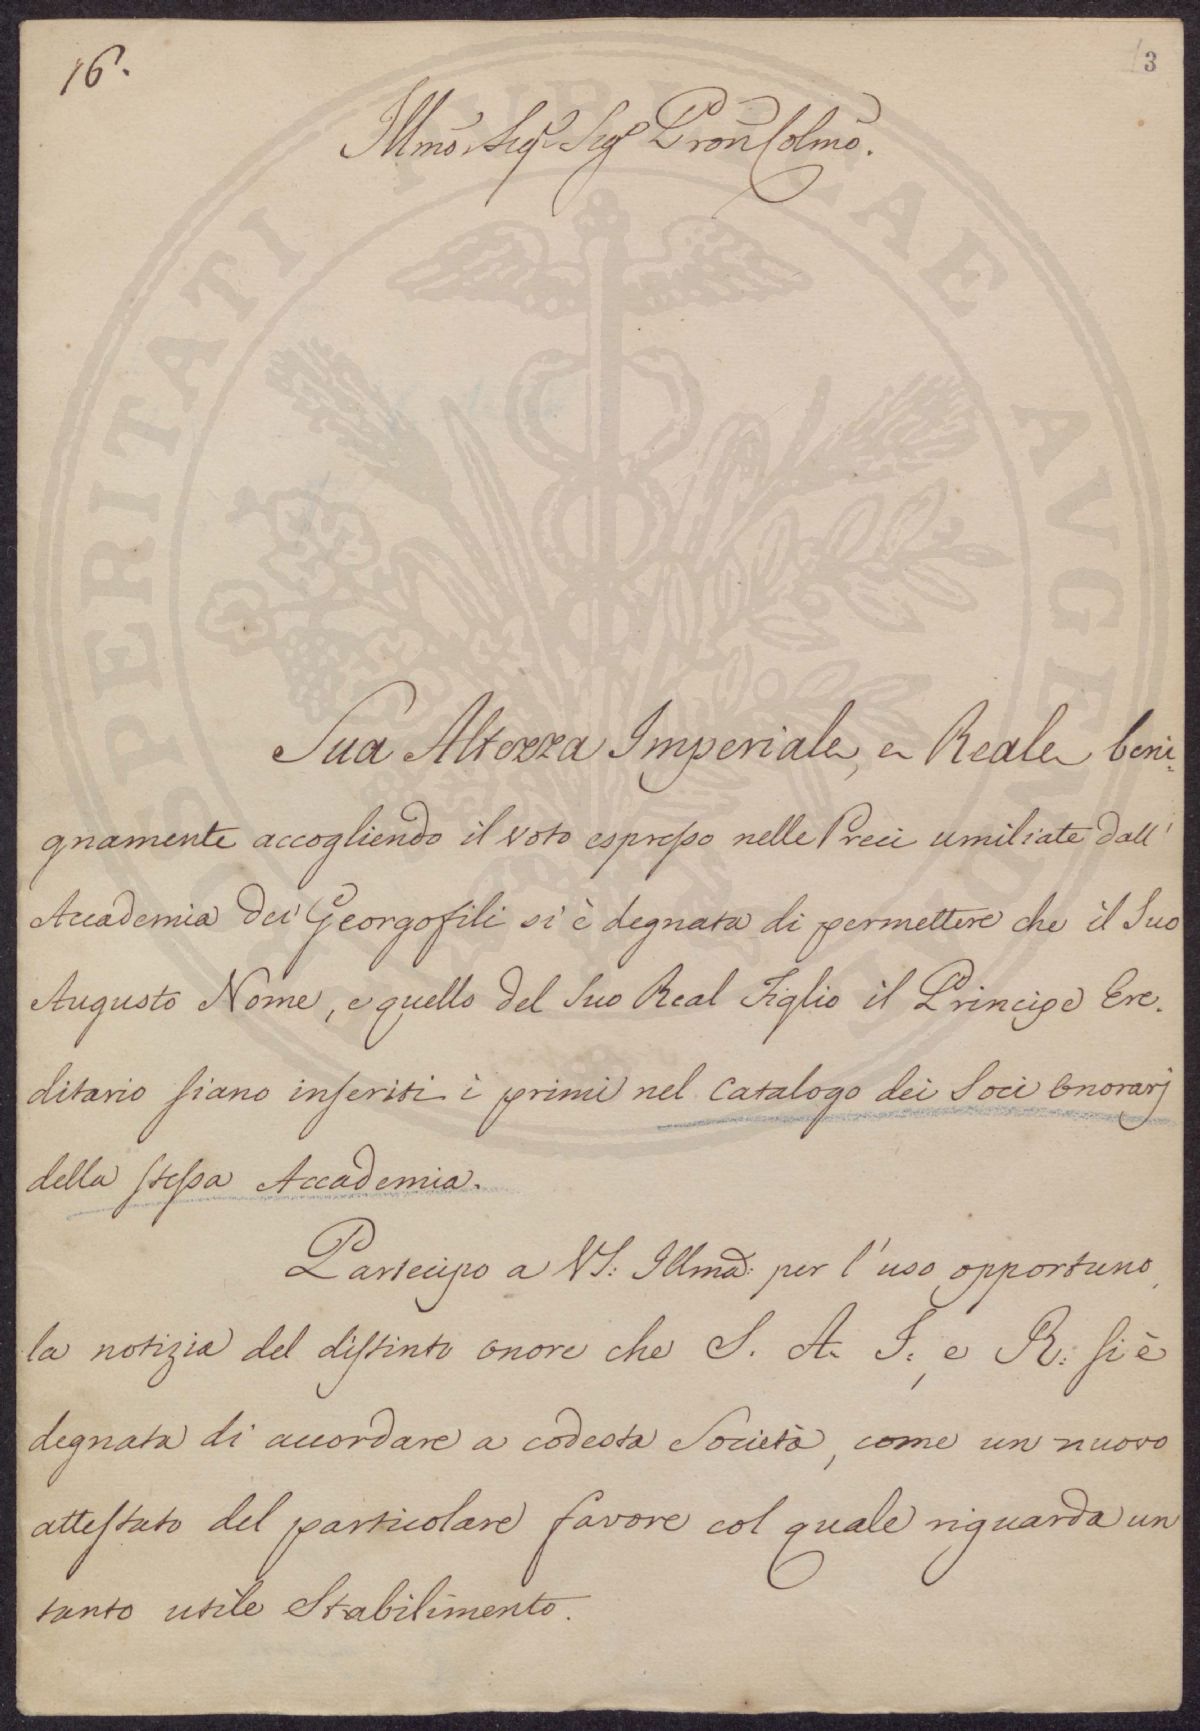 16.
3
Illmo Sigr Sigr Pron Colmo.
Sua Altezza Imperiale, e Reale beni=
gnamente accogliendo il voto espresso nelle Preci umiliate dall'
Accademia dei Georgofili si è degnata di permettere che il Suo
Augusto Nome, e quello del Suo Real Figlio il Principe Ere.
ditario siano inseriti i primi nel Catalogo dei Soci Onorarj
della stessa Accademia.
Partecipo a VS: Illma: per l'uso opportuno
la notizia del distinto onore che S. A. I:, e R: si è
degnata di accordare a codesta Società, come un nuovo
attestato del particolare favore col quale riguarda un
tanto utile Stabilimento.
PROSPERITATI PUBLICAE AVGENDAE